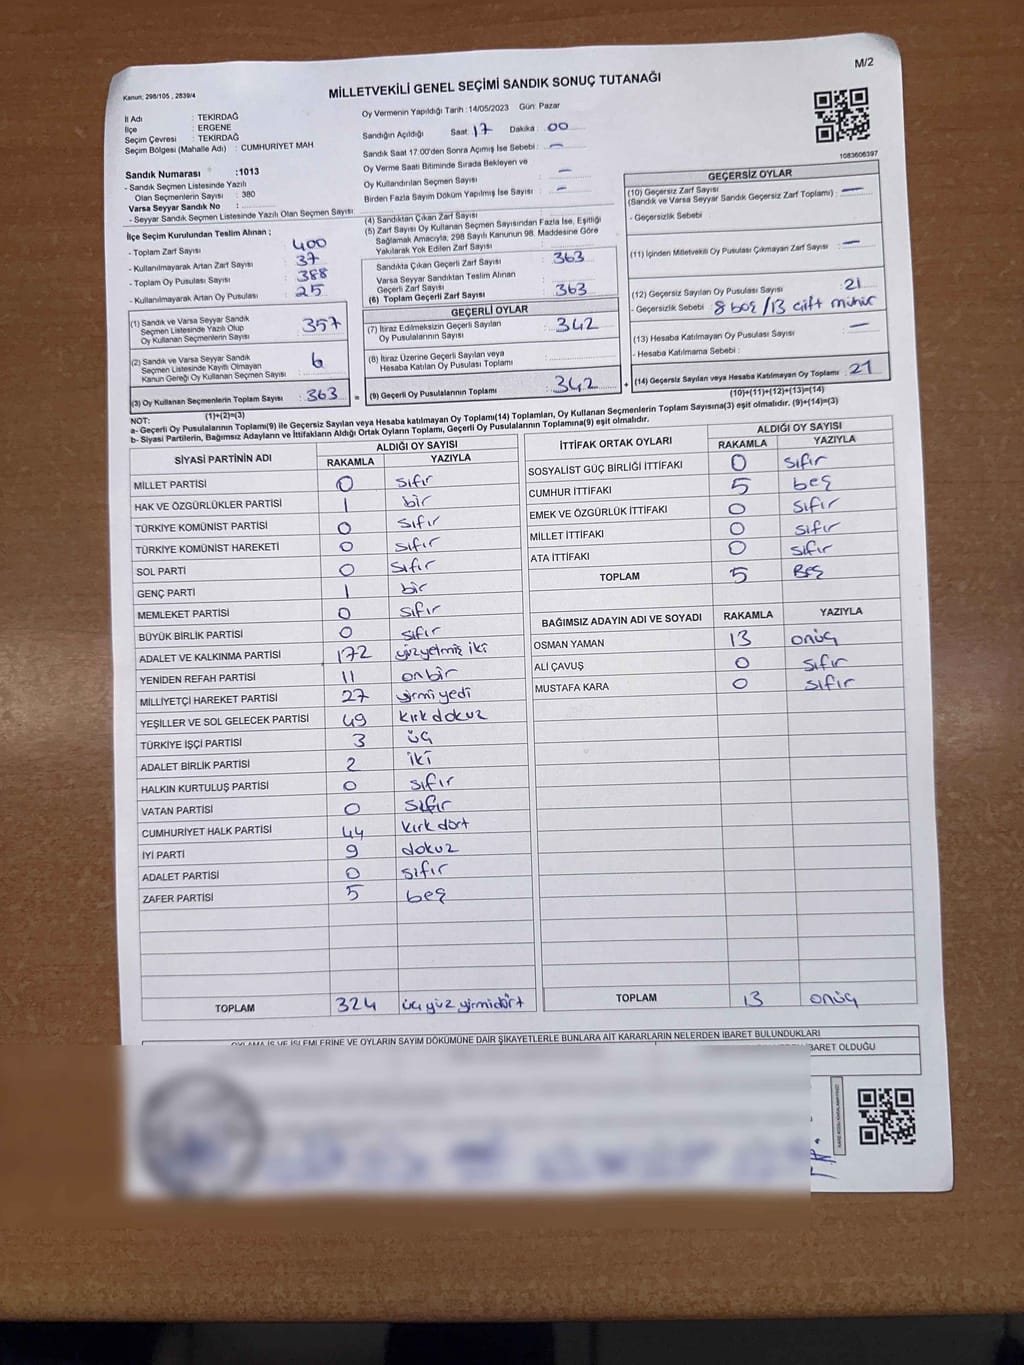 M/2
Kanun; 298/105 , 2839/4
MİLLETVEKİLİ GENEL SEÇİMİ SANDIK SONUÇ TUTANAĞI
İl Adı : TEKİRDAĞ
İlçe : ERGENE
Seçim Çevresi : TEKİRDAĞ
Seçim Bölgesi (Mahalle Adı) : CUMHURİYET MAH
Sandık Numarası :1013
- Sandık Seçmen Listesinde Yazılı
Olan Seçmenlerin Sayısı : 380
Varsa Seyyar Sandık No :
- Seyyar Sandık Seçmen Listesinde Yazılı Olan Seçmen Sayısı
Oy Vermenin Yapıldığı Tarih : 14/05/2023 Gün: Pazar
Sandığın Açıldığı Saat: 17 Dakika : 00
Sandık Saat 17:00'den Sonra Açımış İse Sebebi : -
Oy Verme Saati Bitiminde Sırada Bekleyen ve
Oy Kullandırılan Seçmen Sayısı : -
Birden Fazla Sayım Döküm Yapılmış İse Sayısı : -
1083606397
İlçe Seçim Kurulundan Teslim Alınan ;
- Toplam Zarf Sayısı : 400
- Kullanılmayarak Artan Zarf Sayısı : 37
- Toplam Oy Pusulası Sayısı : 388
- Kullanılmayarak Artan Oy Pusulası : 25
(1) Sandık ve Varsa Seyyar Sandık
Seçmen Listesinde Yazılı Olup
Oy Kullanan Seçmenlerin Sayısı : 357
(2) Sandık ve Varsa Seyyar Sandık
Seçmen Listesinde Kayıtlı Olmayan
Kanun Gereği Oy Kullanan Seçmen Sayısı : 6
(3) Oy Kullanan Seçmenlerin Toplam Sayısı : 363
(1)+(2)=(3)
(4) Sandıktan Çıkan Zarf Sayısı :
(5) Zarf Sayısı Oy Kullanan Seçmen Sayısından Fazla İse, Eşitliği
Sağlamak Amacıyla, 298 Sayılı Kanunun 98. Maddesine Göre
Yakılarak Yok Edilen Zarf Sayısı :
Sandıkta Çıkan Geçerli Zarf Sayısı : 363
Varsa Seyyar Sandıktan Teslim Alınan
Geçerli Zarf Sayısı :
(6) Toplam Geçerli Zarf Sayısı : 363
GEÇERLİ OYLAR
(7) İtiraz Edilmeksizin Geçerli Sayılan
Oy Pusulalarının Sayısı : 342
(8) İtiraz Üzerine Geçerli Sayılan veya
Hesaba Katılan Oy Pusulası Toplamı :
= (9) Geçerli Oy Pusulalarının Toplamı : 342
GEÇERSİZ OYLAR
(10) Geçersiz Zarf Sayısı
(Sandık ve Varsa Seyyar Sandık Geçersiz Zarf Toplamı) : -
- Geçersizlik Sebebi
(11) İçinden Milletvekili Oy Pusulası Çıkmayan Zarf Sayısı : -
(12) Geçersiz Sayılan Oy Pusulası Sayısı : 21
- Geçersizlik Sebebi : 8 boş / 13 çift mühür
(13) Hesaba Katılmayan Oy Pusulası Sayısı : -
- Hesaba Katılmama Sebebi :
+ (14) Geçersiz Sayılan veya Hesaba Katılmayan Oy Toplamı : 21
(10)+(11)+(12)+(13)=(14)
NOT:
a- Geçerli Oy Pusulalarının Toplamı(9) ile Geçersiz Sayılan veya Hesaba katılmayan Oy Toplamı(14) Toplamları, Oy Kullanan Seçmenlerin Toplam Sayısına(3) eşit olmalıdır. (9)+(14)=(3)
b- Siyasi Partilerin, Bağımsız Adayların ve İttifakların Aldığı Ortak Oyların Toplamı, Geçerli Oy Pusulalarının Toplamına(9) eşit olmalıdır.
SİYASİ PARTİNİN ADI ALDIĞI OY SAYISI
RAKAMLA YAZIYLA
MİLLET PARTİSİ 0 sıfır
HAK VE ÖZGÜRLÜKLER PARTİSİ 1 bir
TÜRKİYE KOMÜNİST PARTİSİ 0 sıfır
TÜRKİYE KOMÜNİST HAREKETİ 0 sıfır
SOL PARTİ 0 sıfır
GENÇ PARTİ 1 bir
MEMLEKET PARTİSİ 0 sıfır
BÜYÜK BİRLİK PARTİSİ 0 sıfır
ADALET VE KALKINMA PARTİSİ 172 yüzyetmiş iki
YENİDEN REFAH PARTİSİ 11 onbir
MİLLİYETÇİ HAREKET PARTİSİ 27 yirmi yedi
YEŞİLLER VE SOL GELECEK PARTİSİ 49 kırk dokuz
TÜRKİYE İŞÇİ PARTİSİ 3 üç
ADALET BİRLİK PARTİSİ 2 iki
HALKIN KURTULUŞ PARTİSİ 0 sıfır
VATAN PARTİSİ 0 sıfır
CUMHURİYET HALK PARTİSİ 44 kırk dört
İYİ PARTİ 9 dokuz
ADALET PARTİSİ 0 sıfır
ZAFER PARTİSİ 5 beş
TOPLAM 324 üç yüz yirmidört
İTTİFAK ORTAK OYLARI ALDIĞI OY SAYISI
RAKAMLA YAZIYLA
SOSYALİST GÜÇ BİRLİĞİ İTTİFAKI 0 sıfır
CUMHUR İTTİFAKI 5 beş
EMEK VE ÖZGÜRLÜK İTTİFAKI 0 sıfır
MİLLET İTTİFAKI 0 sıfır
ATA İTTİFAKI 0 sıfır
TOPLAM 5 Beş
BAĞIMSIZ ADAYIN ADI VE SOYADI RAKAMLA YAZIYLA
OSMAN YAMAN 13 onüç
ALİ ÇAVUŞ 0 sıfır
MUSTAFA KARA 0 sıfır
TOPLAM 13 onüç
OYLAMA İŞ VE İŞLEMLERİNE VE OYLARIN SAYIM DÖKÜMÜNE DAİR ŞİKAYETLERLE BUNLARA AİT KARARLARIN NELERDEN İBARET BULUNDUKLARI
İBARET OLDUĞU